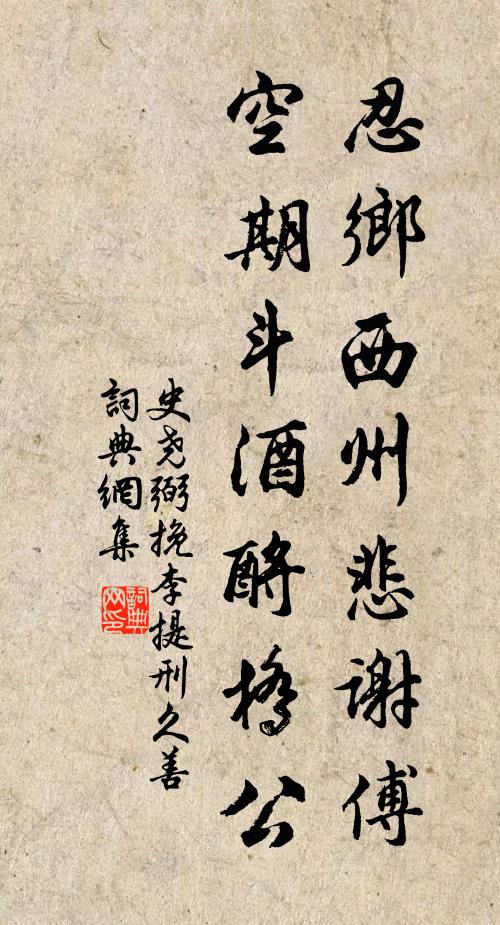 忍鄉西州悲謝傅
空期斗酒酹橋公
史堯弼挽李提刑久善
詞典網集
詞典網印